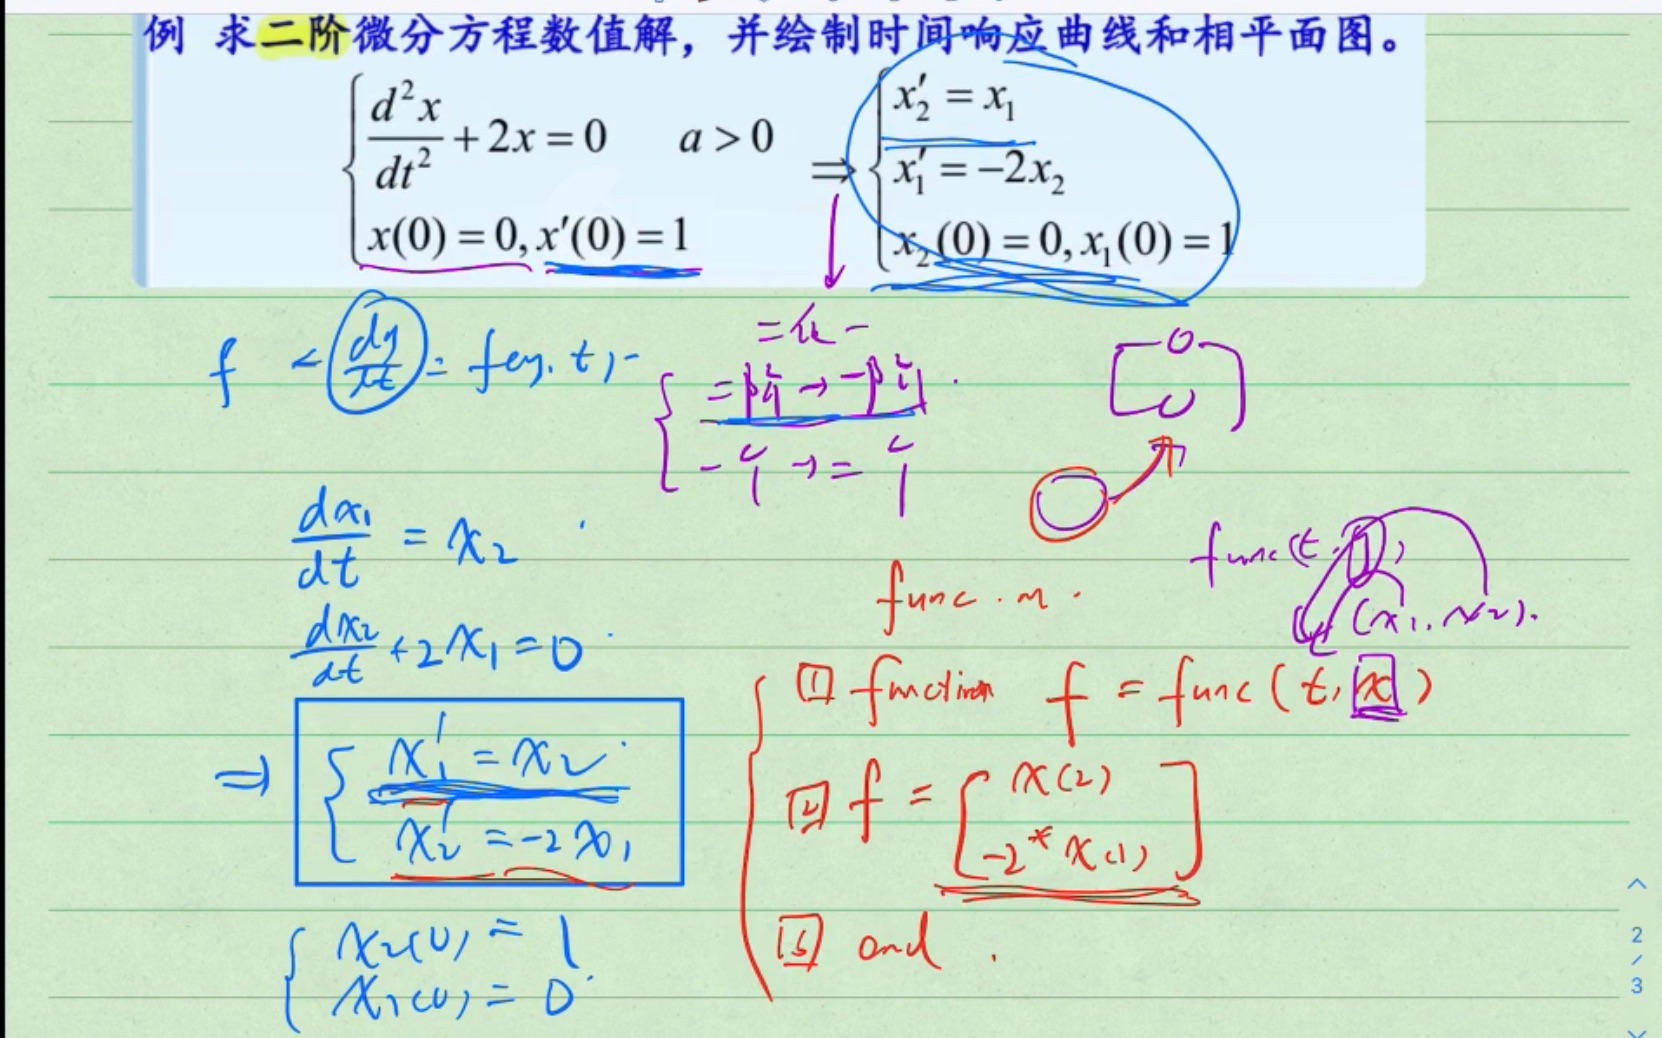 例 求二阶微分方程数值解，并绘制时间响应曲线和相平面图。
d²x/dt² + 2x = 0 a > 0
x(0) = 0, x′(0) = 1
⇒
x₂′ = x₁
x₁′ = −2x₂
x₂(0) = 0, x₁(0) = 1
f < dy/dt = f(y, t)
二阶 → 一阶
一个 → 二个
dx₁/dt = x₂
dx₂/dt + 2x₁ = 0
⇒ x₁′ = x₂
x₂′ = −2x₁
x₂(0) = 1
x₁(0) = 0
func(t, )
(x₁, x₂).
func.m
1 function f = func(t, x)
2 f = [x(2)
−2*x(1)]
3 end
2
/
3